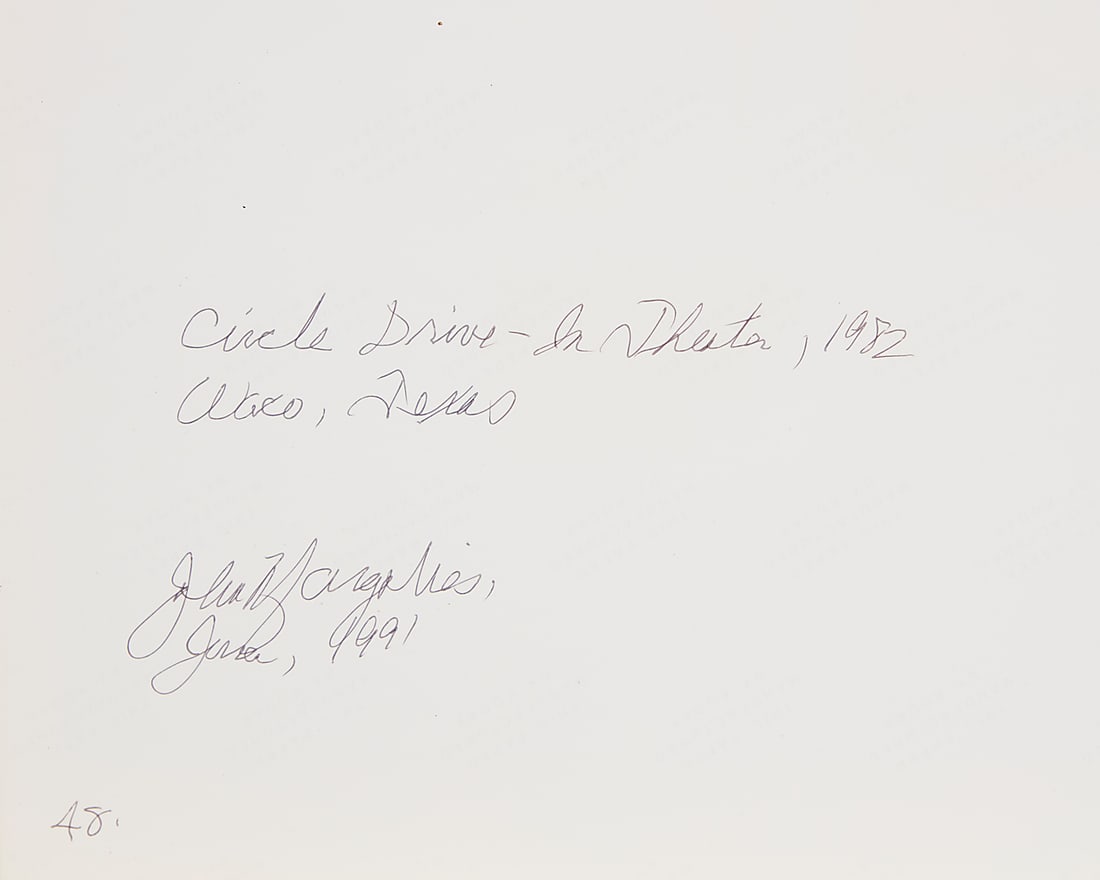 Circle Drive-In Theater, 1982
Waco, Texas
John Margolies,
June, 1991
48.